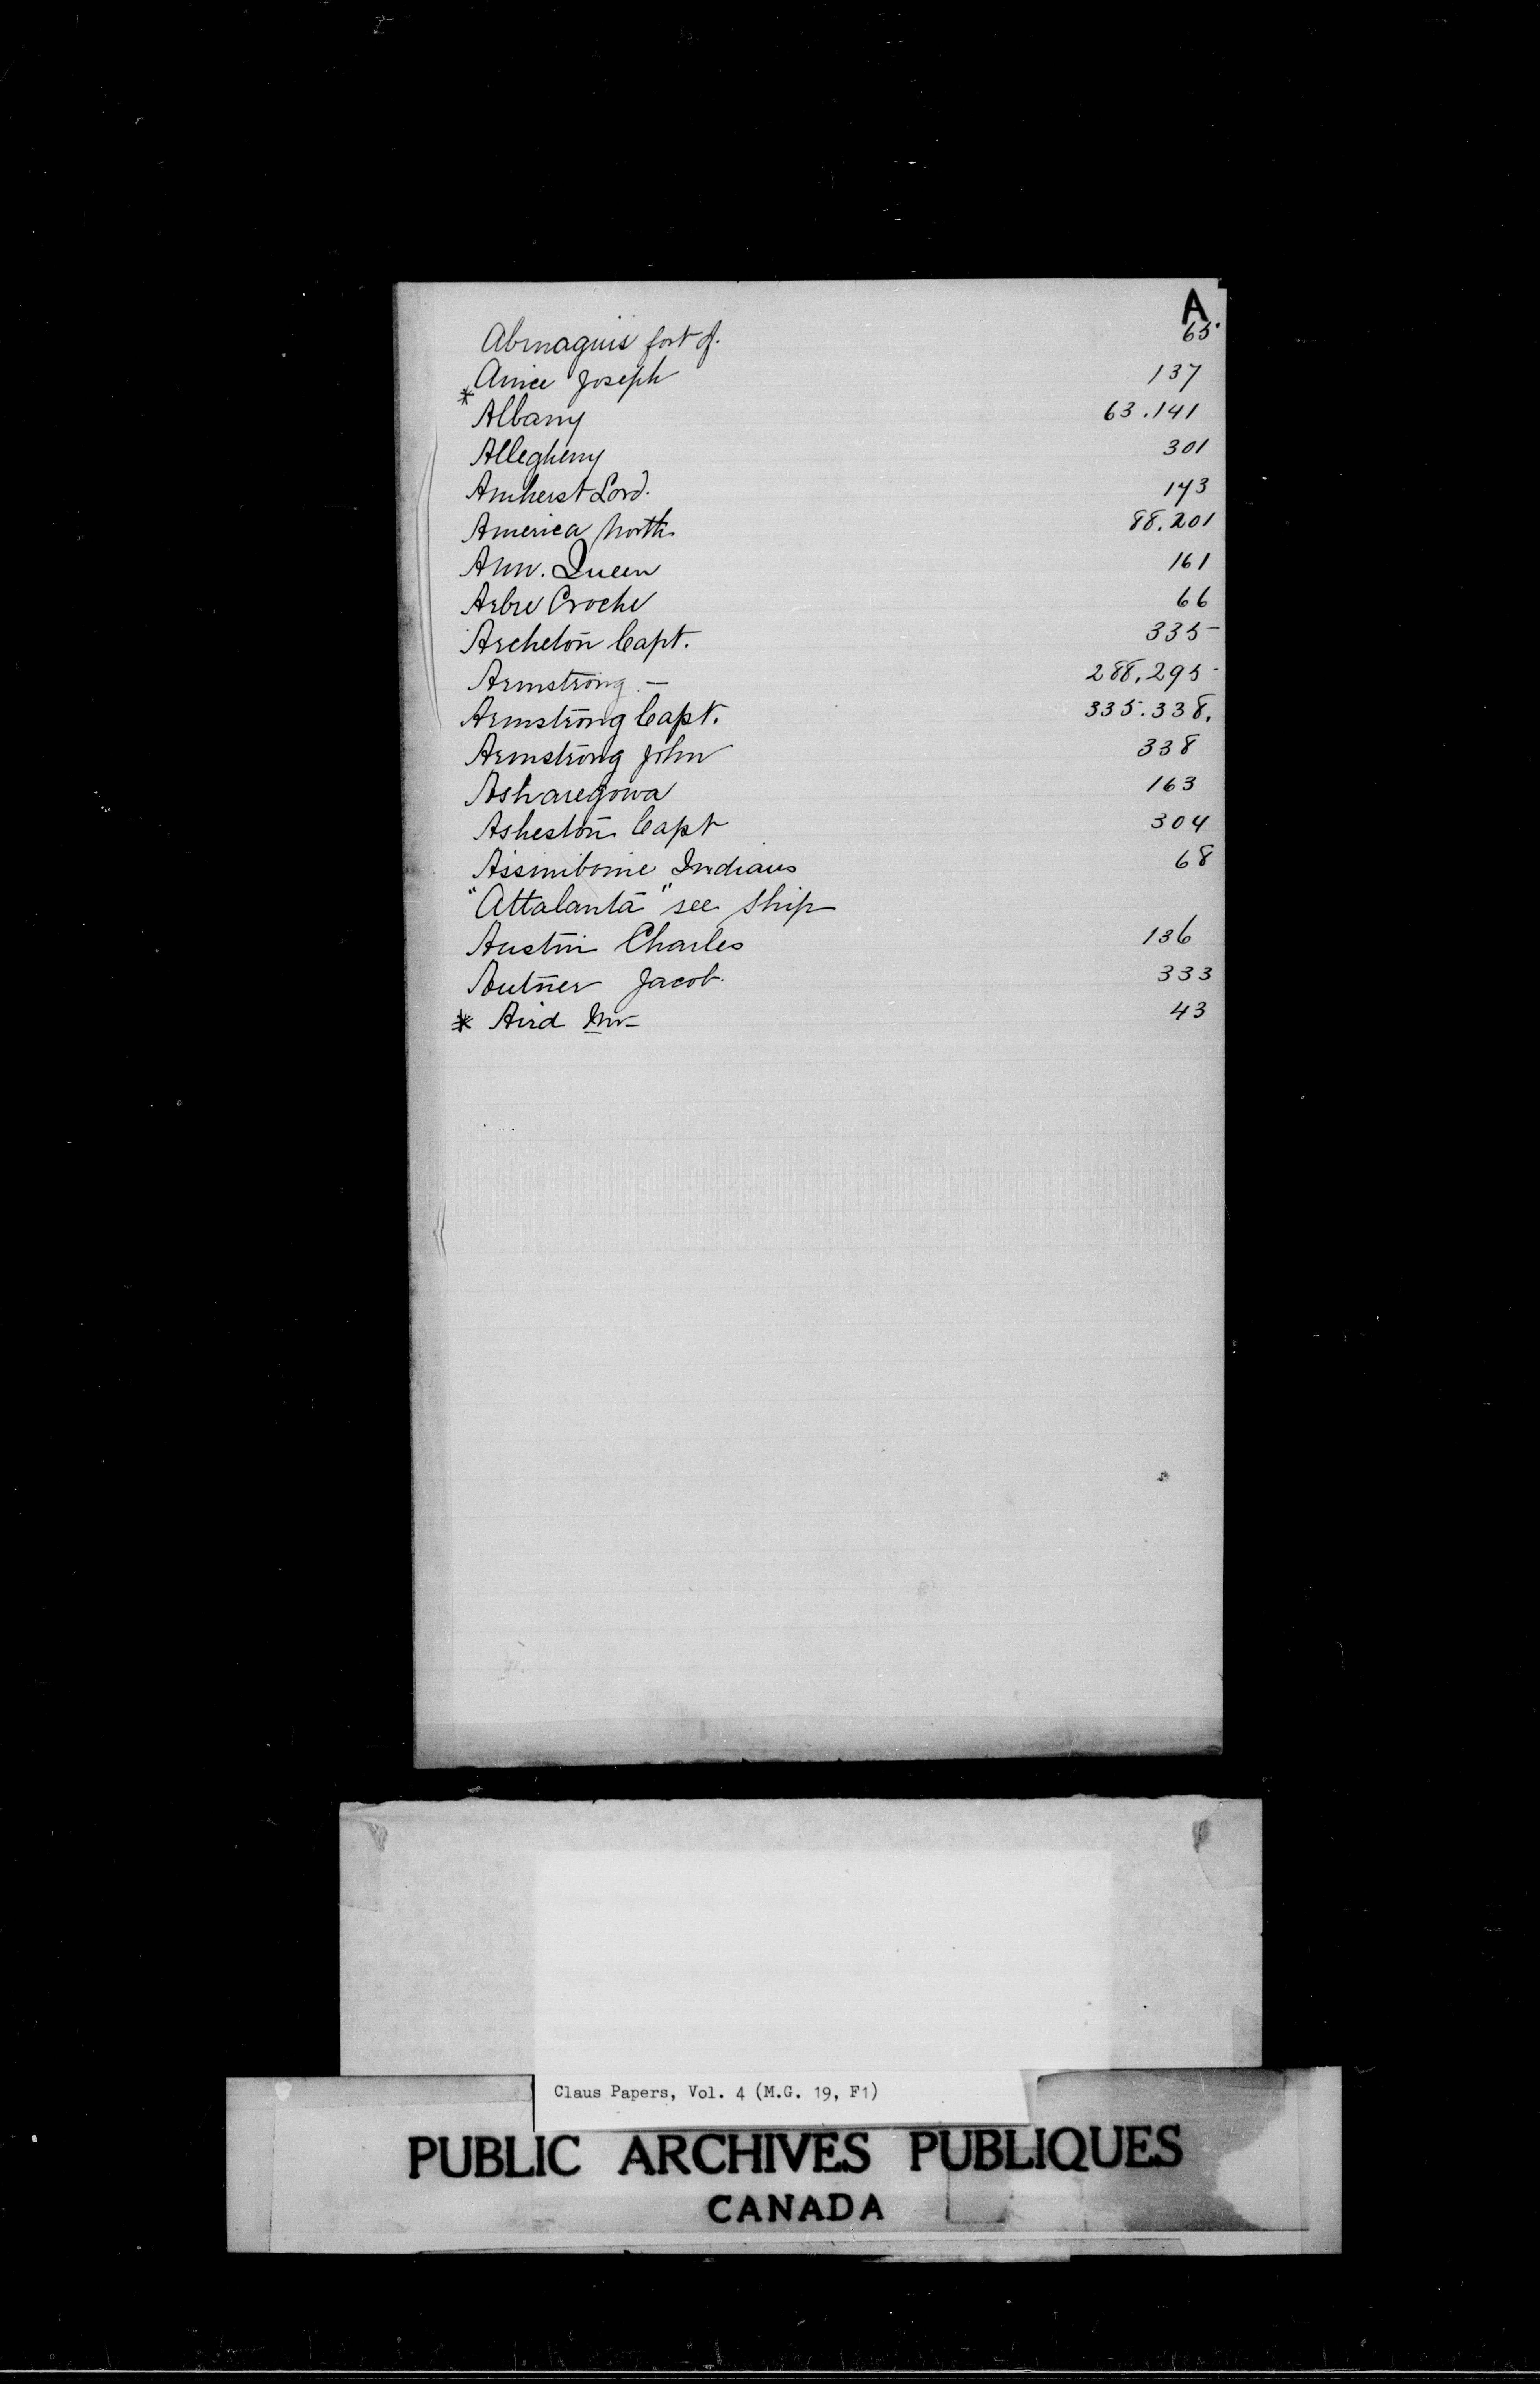 A
Abinaguis fort of. 65
Amie Joseph 137
* Albany 63.141
Allegheny 301
Amherst Lord. 143
America North 88.201
Ann. Queen 161
Arbre Croche 66
Archeton Capt. 335
Armstrong - 288.295
Armstrong Capt. 335.338.
Armstrong John 338
Asharegowa 163
Asheston Capt 304
Assiniboine Indians 68
"Attalanta" see Ship
Austin Charles 136
Autner Jacob. 333
* Aird Mr 43
Claus Papers, Vol. 4 (M.G. 19, F1)
PUBLIC ARCHIVES PUBLIQUES
CANADA